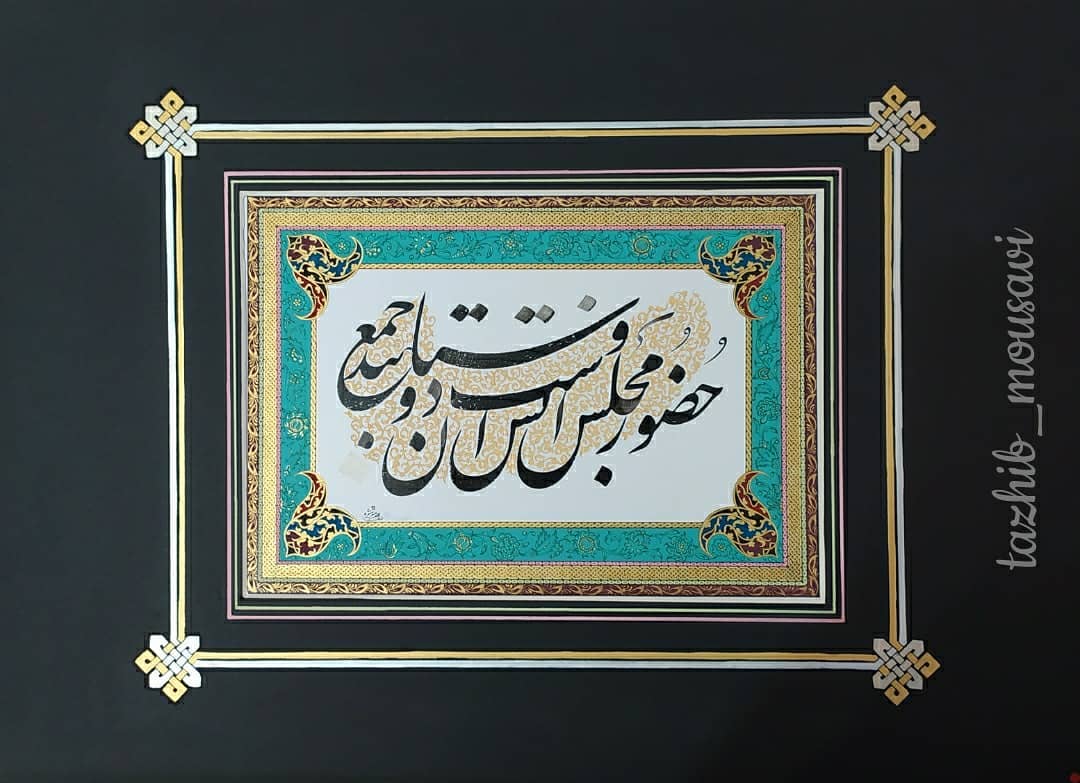 حضور مجلس انس است و دوستان جمعند
tazhib_mousavi